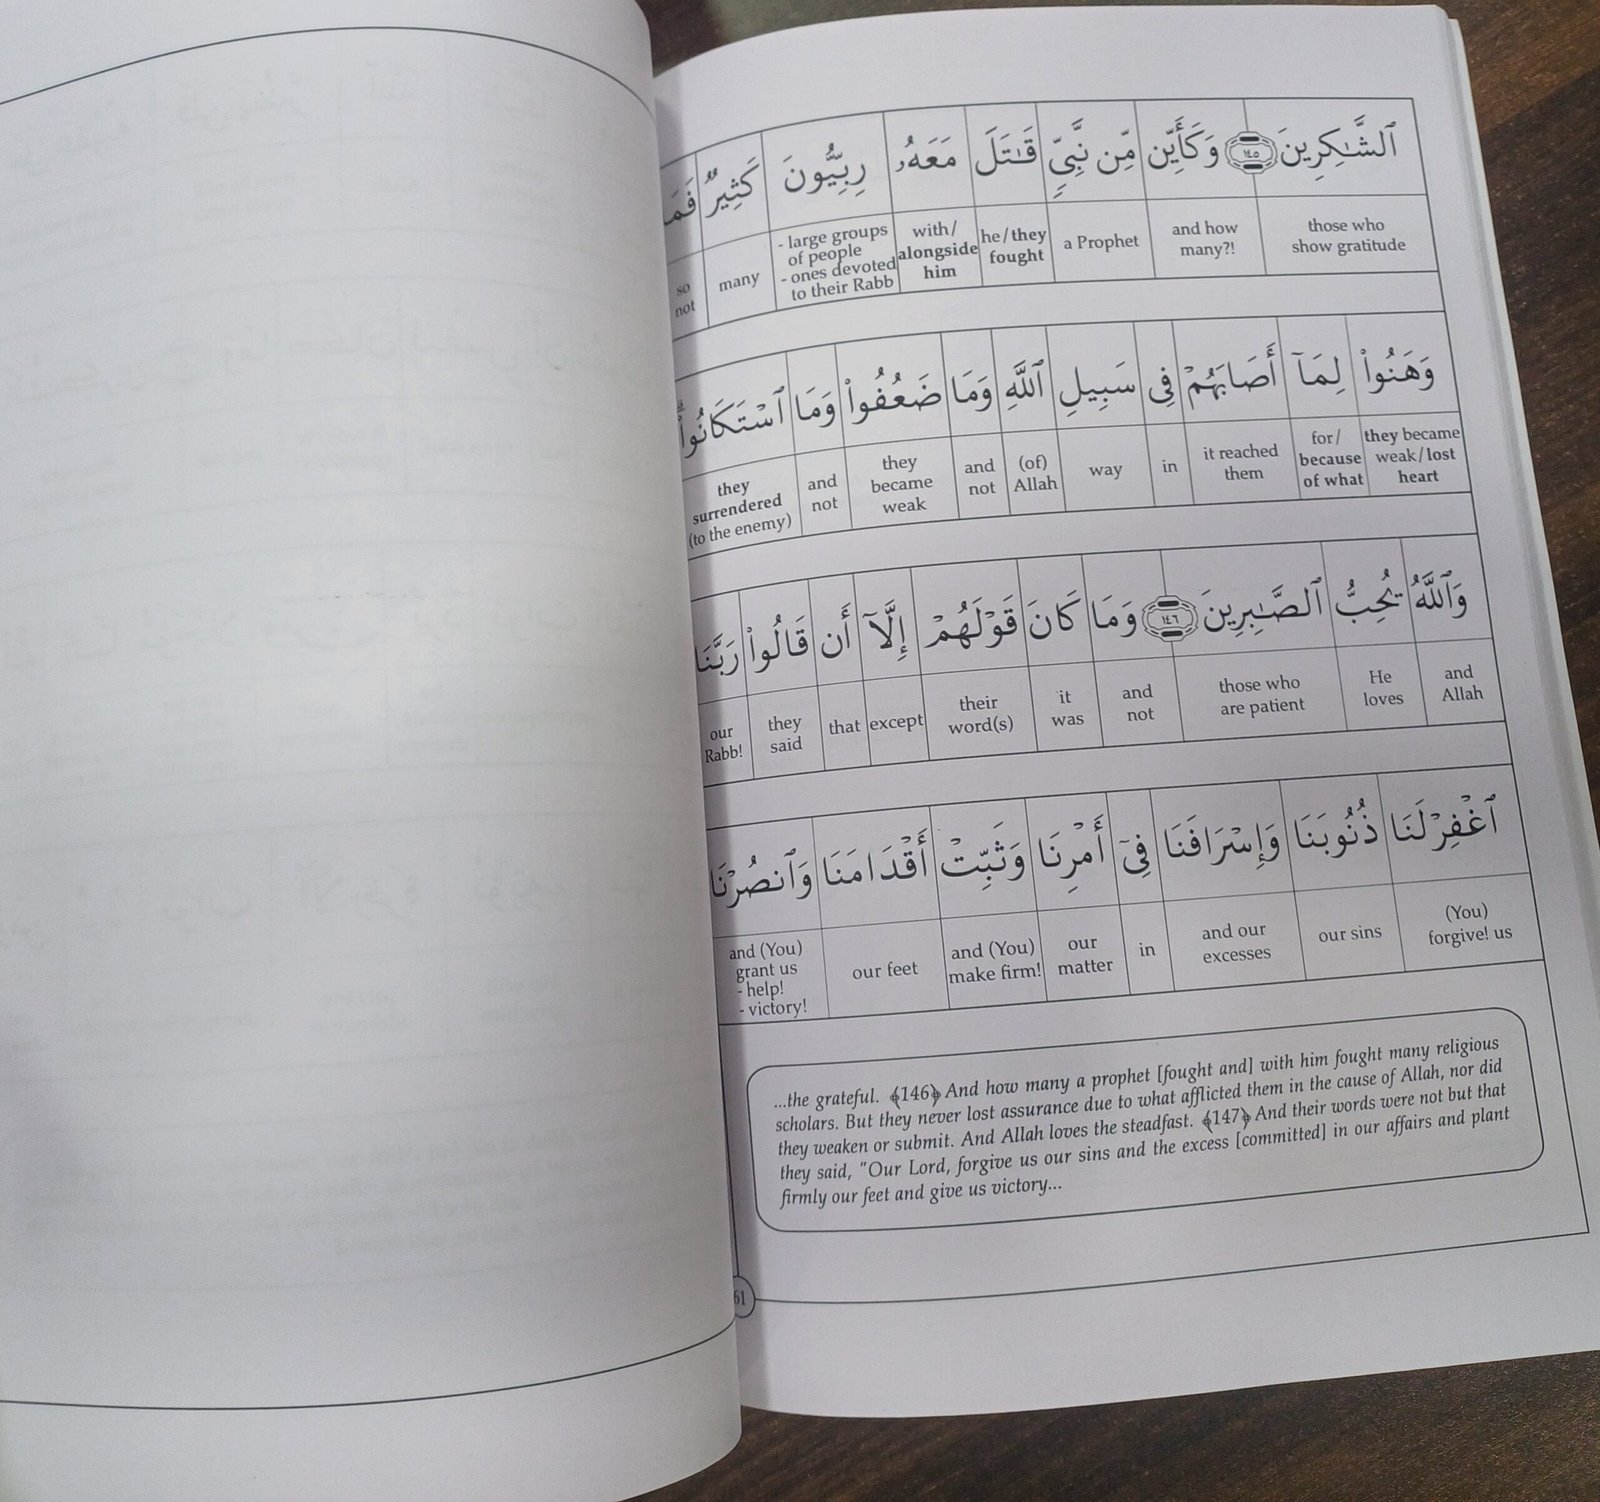 ٱلشَّـٰكِرِينَ ١٤٥ وَكَأَيِّن مِّن نَّبِىٍّۢ قَـٰتَلَ مَعَهُۥ رِبِّيُّونَ كَثِيرٌۭ فَمَا
those who show gratitude
and how many?!
a Prophet
he/they fought
with/alongside him
- large groups of people
- ones devoted to their Rabb
many
so not
وَهَنُوا۟ لِمَآ أَصَابَهُمْ فِى سَبِيلِ ٱللَّهِ وَمَا ضَعُفُوا۟ وَمَا ٱسْتَكَانُوا۟ ۗ
they became weak/lost heart
for/because of what
it reached them
in
way
(of) Allah
and not
they became weak
and not
they surrendered (to the enemy)
وَٱللَّهُ يُحِبُّ ٱلصَّـٰبِرِينَ ١٤٦ وَمَا كَانَ قَوْلَهُمْ إِلَّآ أَن قَالُوا۟ رَبَّنَا
and Allah
He loves
those who are patient
and not
it was
their word(s)
except
that
they said
our Rabb!
ٱغْفِرْ لَنَا ذُنُوبَنَا وَإِسْرَافَنَا فِىٓ أَمْرِنَا وَثَبِّتْ أَقْدَامَنَا وَٱنصُرْنَا
(You) forgive! us
our sins
and our excesses
in
our matter
and (You) make firm!
our feet
and (You) grant us
- help!
- victory!
...the grateful. ﴾146﴿ And how many a prophet [fought and] with him fought many religious
scholars. But they never lost assurance due to what afflicted them in the cause of Allah, nor did
they weaken or submit. And Allah loves the steadfast. ﴾147﴿ And their words were not but that
they said, "Our Lord, forgive us our sins and the excess [committed] in our affairs and plant
firmly our feet and give us victory...